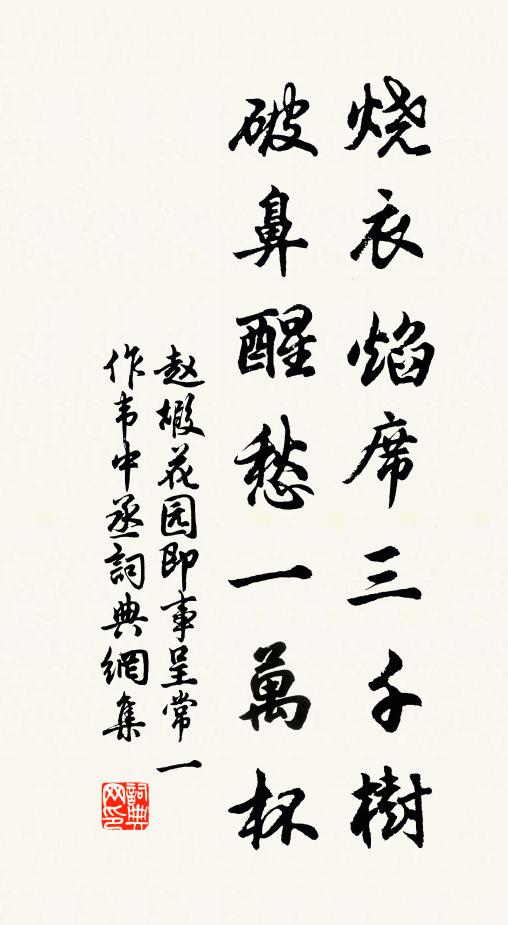 烧衣焰席三千樹
破鼻醒愁一萬杯
赵嘏花园即事呈常一
作韦中丞詞典網集
詞典网印